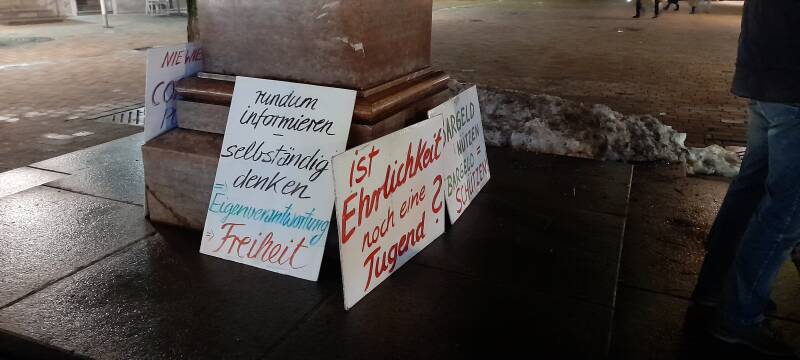 NIE WIE
CO
rundum
informieren –
selbständig
denken
⇒ Eigenverantwortung
⇒ Freiheit
ist
Ehrlichkeit
noch eine
Tugend?
BARGELD
NÜTZEN
=
BARGELD
SCHÜTZEN